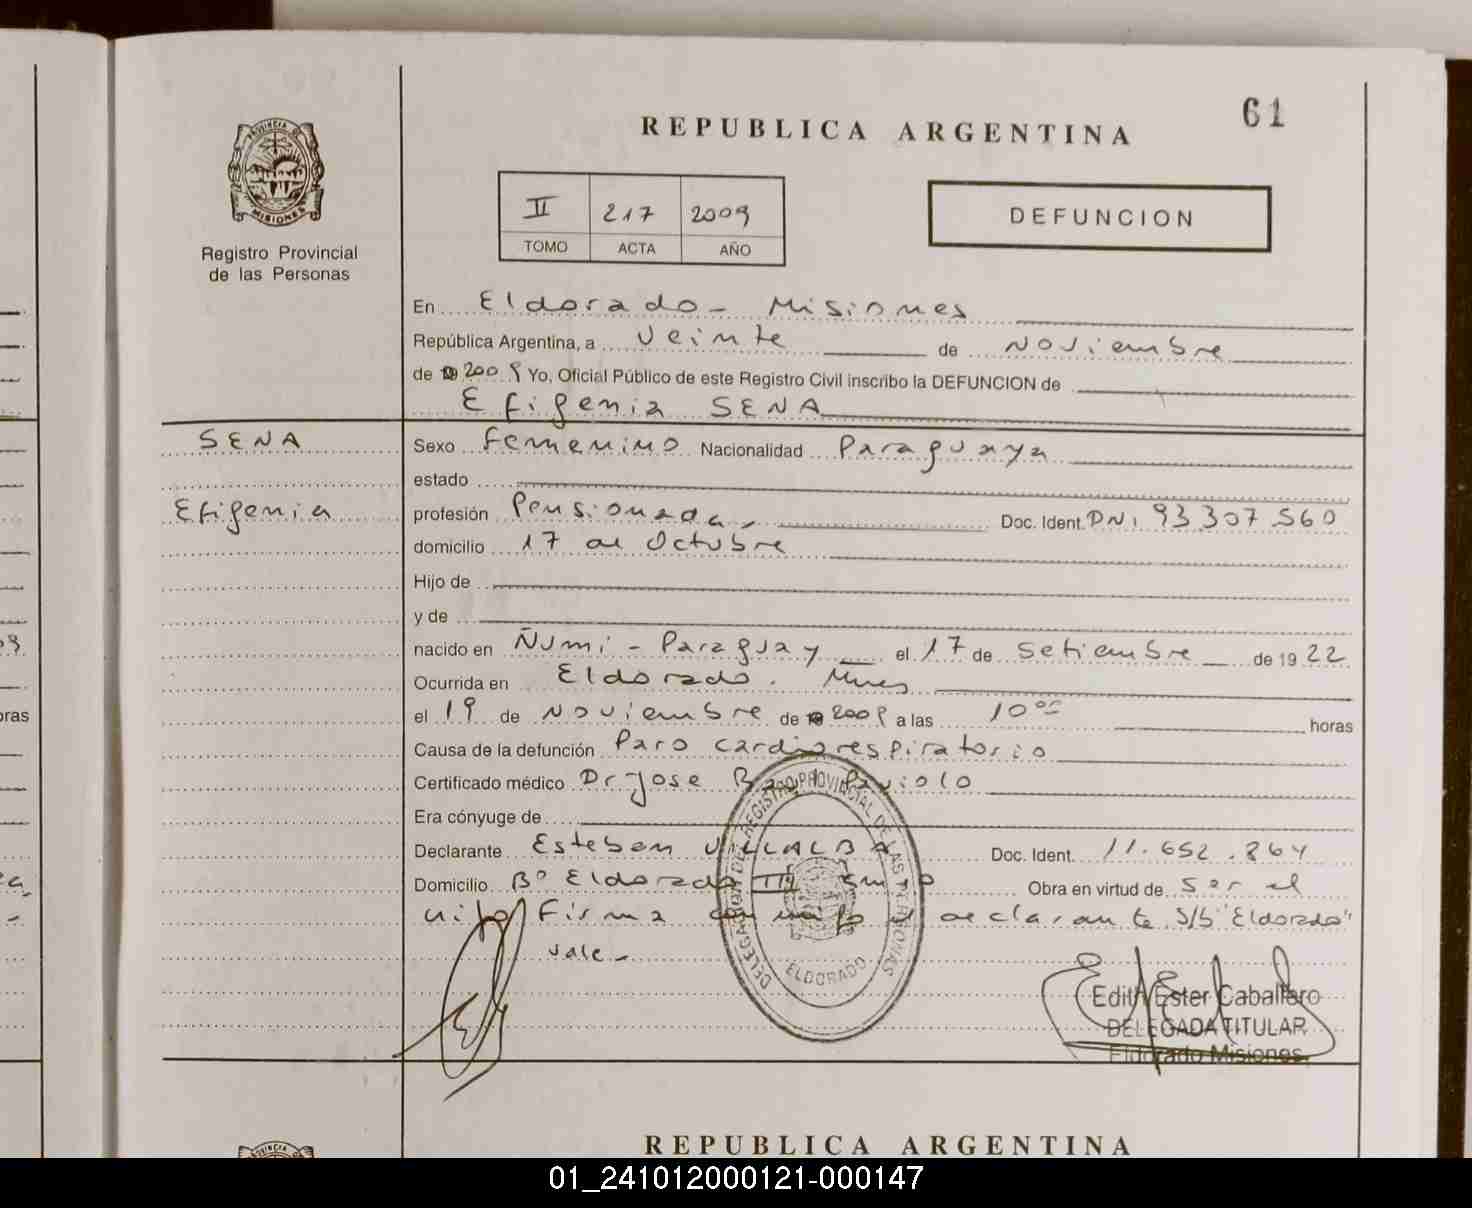 61
REPUBLICA ARGENTINA
PROVINCIA DE
MISIONES
Registro Provincial
de las Personas
II 217 2009
TOMO ACTA AÑO
DEFUNCION
En Eldorado - Misiones
República Argentina, a veinte de Noviembre
de 2009 Yo, Oficial Público de este Registro Civil inscribo la DEFUNCION de
Efigenia SENA
SENA
Efigenia
Sexo Femenino Nacionalidad Paraguaya
estado
profesión Pensionada, Doc. Ident. DNi 93307560
domicilio 17 de Octubre
Hijo de
y de
nacido en Ñumi - Paraguay el 17 de Setiembre de 1922
Ocurrida en Eldorado. Mnes
el 19 de Noviembre de 2009 a las 10ºº horas
Causa de la defunción Paro cardiorespiratorio
Certificado médico Dr Jose Paviolo
Era cónyuge de
Declarante Esteban VILLALBA Doc. Ident. 11.652.864
Domicilio Bº Eldorado Obra en virtud de ser el
Firma el declarante S/b "Eldorado"
vale -
DELEGACION DEL REGISTRO PROVINCIAL DE LAS PERSONAS
ELDORADO
Edith Ester Caballero
DELEGADA TITULAR
Eldorado Misiones
REPUBLICA ARGENTINA
PROVINCIA DE
03
oras
01_241012000121-000147